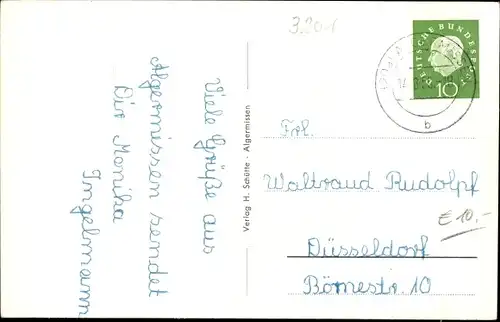 3.201
DEUTSCHE BUNDESPOST
10
b
Viele Grüße aus
Algermissen sendet
Dir Monika
Ingelmann
Verlag H. Schütte - Algermissen
Frl.
Waltraud Rudolph
€ 10,-
Düsseldorf
Börnestr. 10